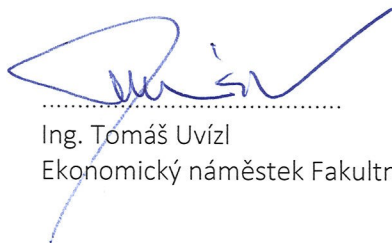 Ing. Tomáš Uvízl
Ekonomický náměstek